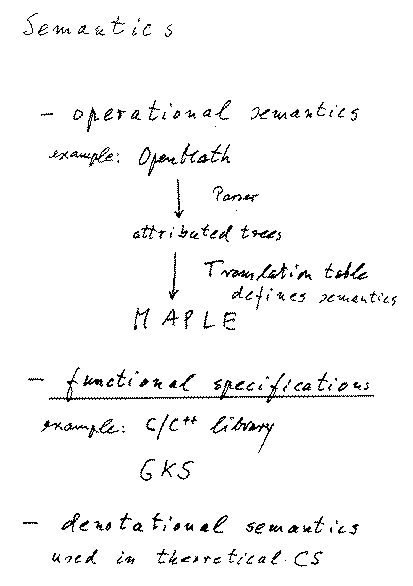 Semantics
- operational semantics
example: OpenMath
Parser
attributed trees
Translation table
defines semantics
MAPLE
- functional specifications
example: C/C++ library
GKS
- denotational semantics
used in theoretical CS